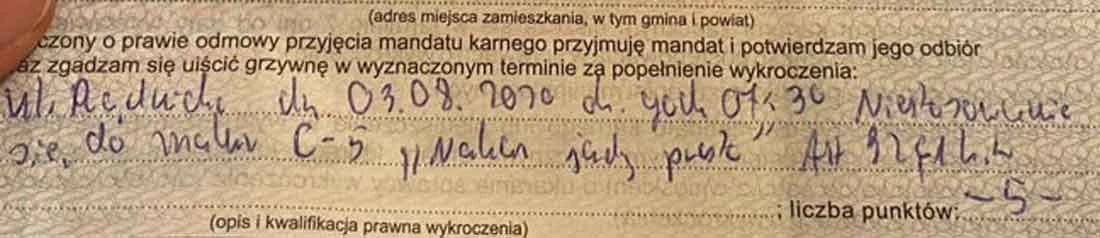 (adres miejsca zamieszkania, w tym gmina i powiat)
czony o prawie odmowy przyjęcia mandatu karnego przyjmuję mandat i potwierdzam jego odbiór
az zgadzam się uiścić grzywnę w wyznaczonym terminie za popełnienie wykroczenia:
ul. dn 03.08.2020 o godz 07:30 Niestosowanie
się do znaku C-5 „Nakaz jazdy prosto” Art 92 §1 k.w
; liczba punktów: -5-
(opis i kwalifikacja prawna wykroczenia)